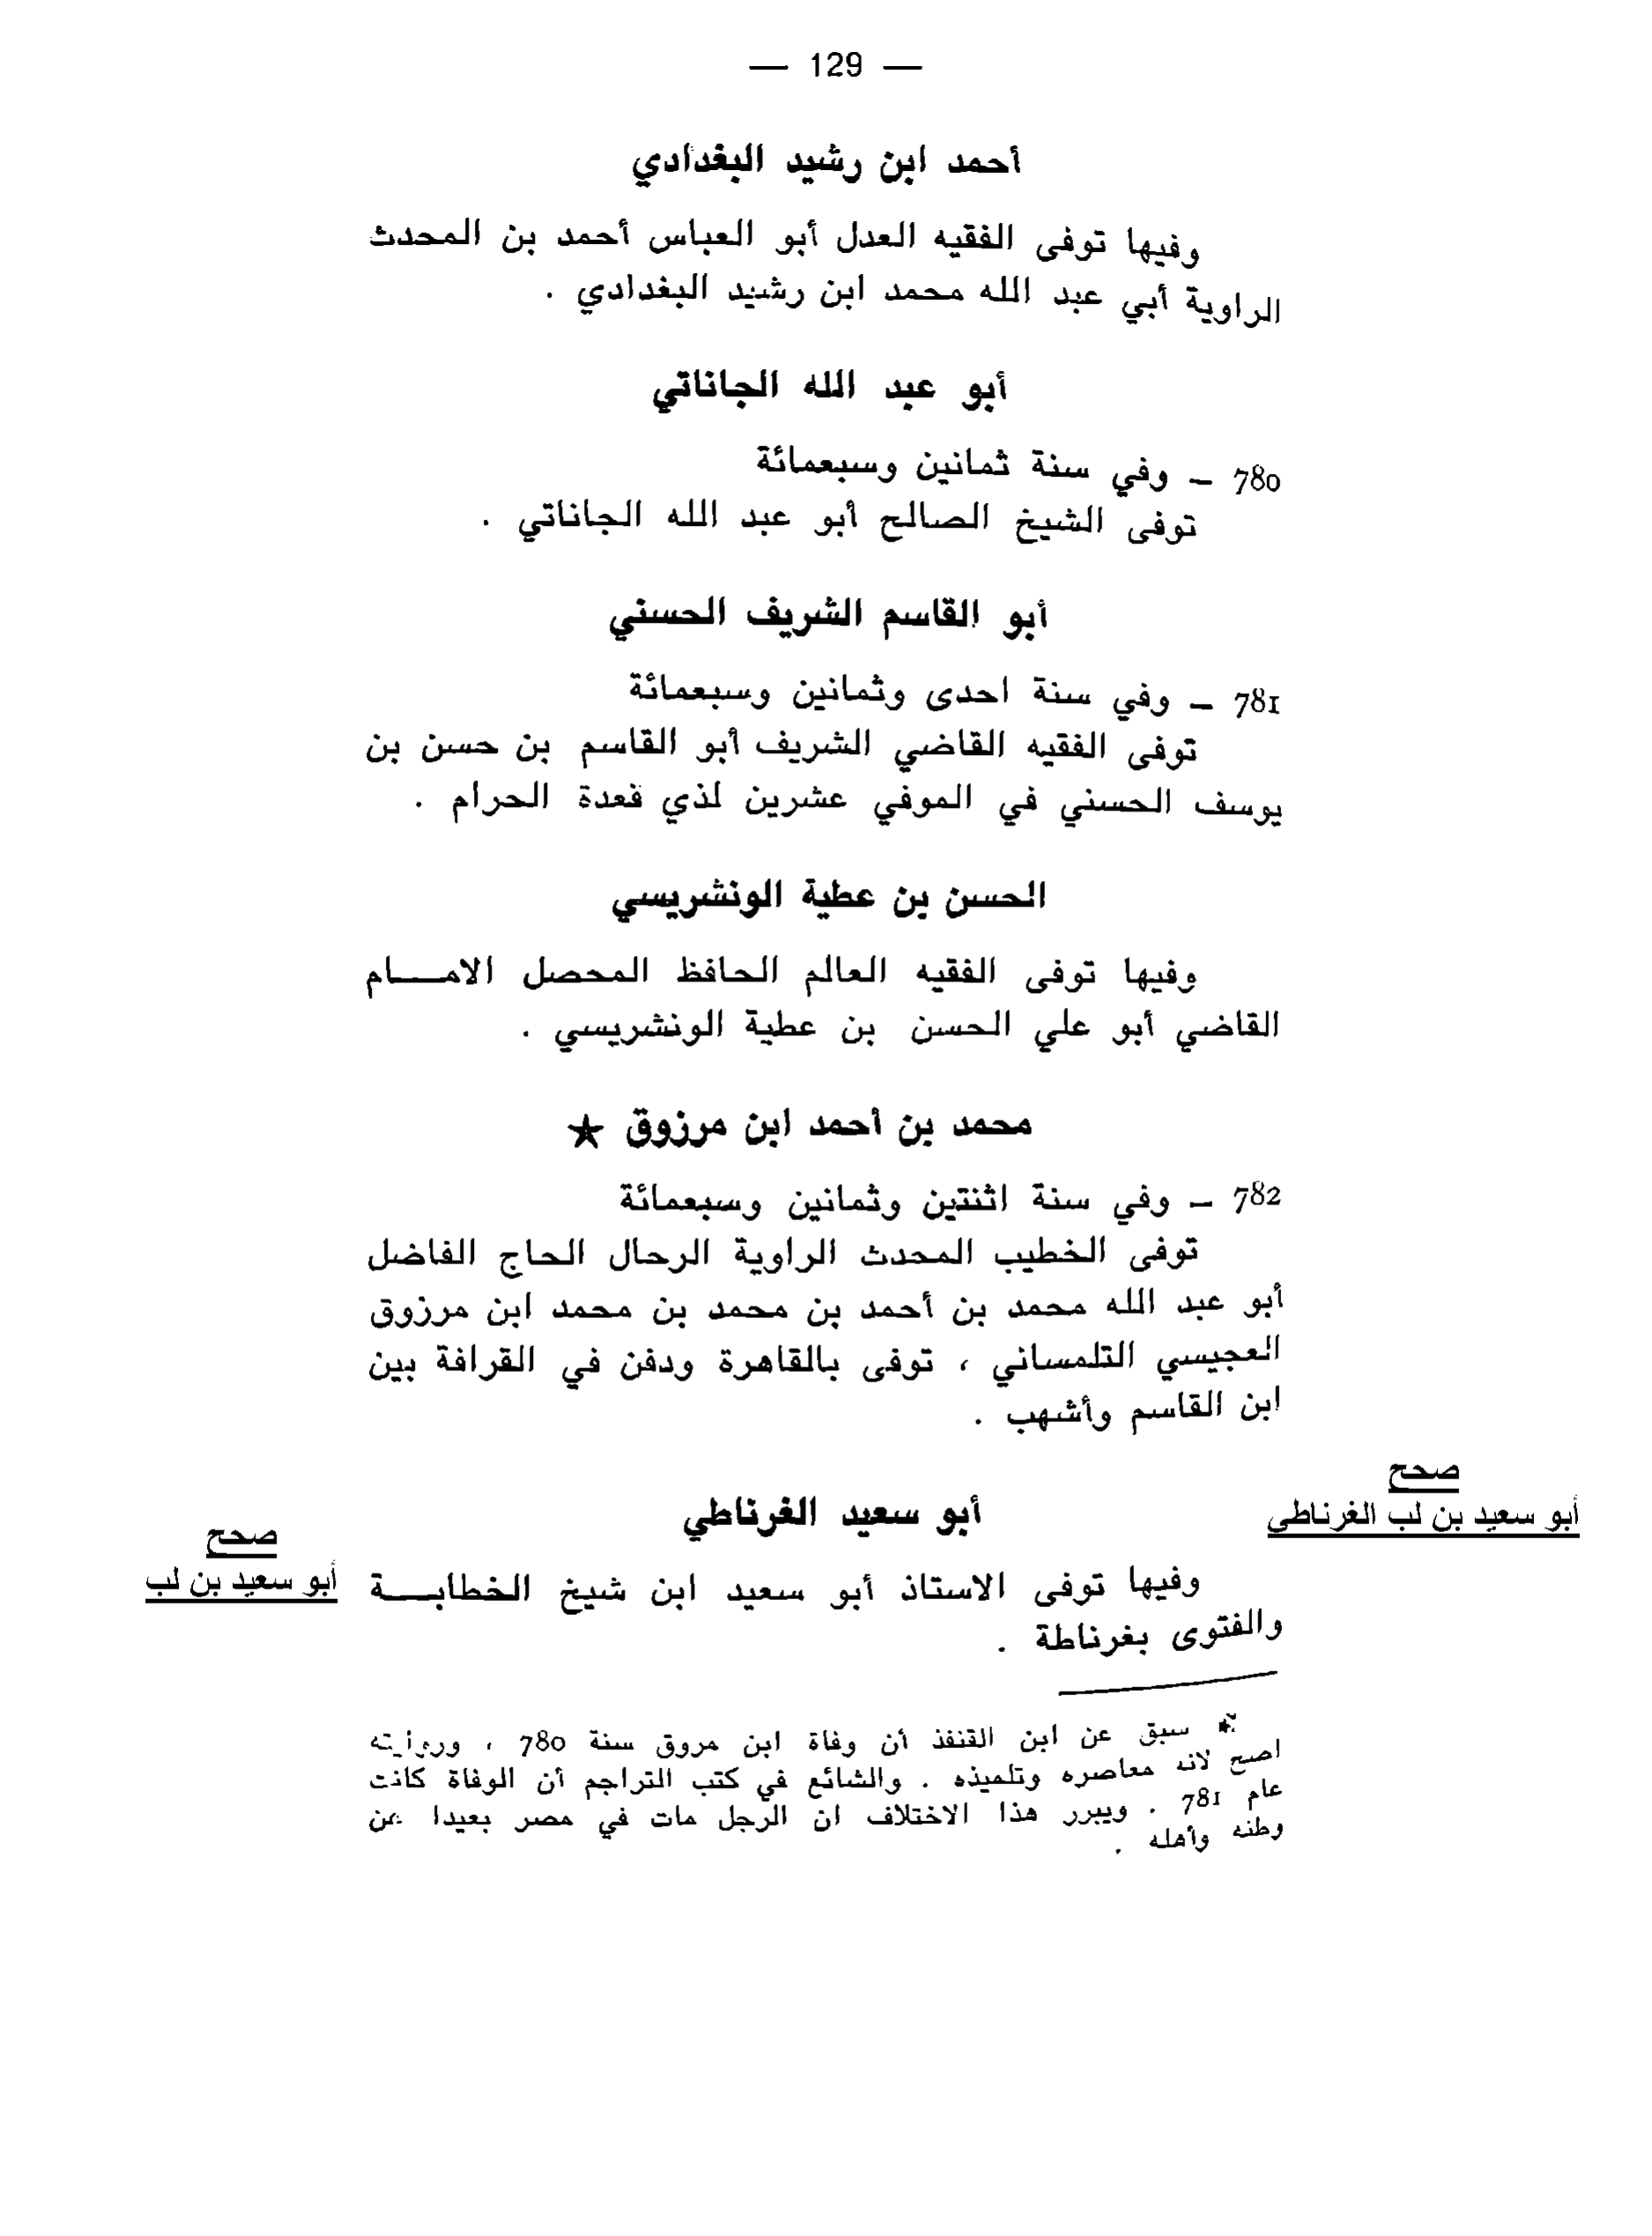 — 129 —
أحمد ابن رشيد البغدادي
وفيها توفى الفقيه العدل أبو العباس أحمد بن المحدث
الراوية أبي عبد الله محمد ابن رشيد البغدادي .
أبو عبد الله الجاناتي
780 – وفي سنة ثمانين وسبعمائة
توفى الشيخ الصالح أبو عبد الله الجاناتي .
أبو القاسم الشريف الحسني
781 – وفي سنة احدى وثمانين وسبعمائة
توفى الفقيه القاضي الشريف أبو القاسم بن حسن بن
يوسف الحسني في الموفي عشرين لذي قعدة الحرام .
الحسن بن عطية الونشريسي
وفيها توفى الفقيه العالم الحافظ المحصل الامـــام
القاضي أبو علي الحسن بن عطية الونشريسي .
محمد بن أحمد ابن مرزوق ★
782 – وفي سنة اثنتين وثمانين وسبعمائة
توفى الخطيب المحدث الراوية الرحال الحاج الفاضل
أبو عبد الله محمد بن أحمد بن محمد بن محمد ابن مرزوق
العجيسي التلمساني ، توفى بالقاهرة ودفن في القرافة بين
ابن القاسم وأشهب .
صحح
أبو سعيد بن لب الغرناطي
أبو سعيد الغرناطي
صحح
أبو سعيد بن لب
وفيها توفى الاستاذ أبو سعيد ابن شيخ الخطابـــة
والفتوى بغرناطة .
★ سبق عن ابن القنفذ أن وفاة ابن مروق سنة 780 ، وروايته
اصح لانه معاصره وتلميذه . والشائع في كتب التراجم أن الوفاة كانت
عام 781 . ويبرر هذا الاختلاف ان الرجل مات في مصر بعيدا عن
وطنه وأهله .